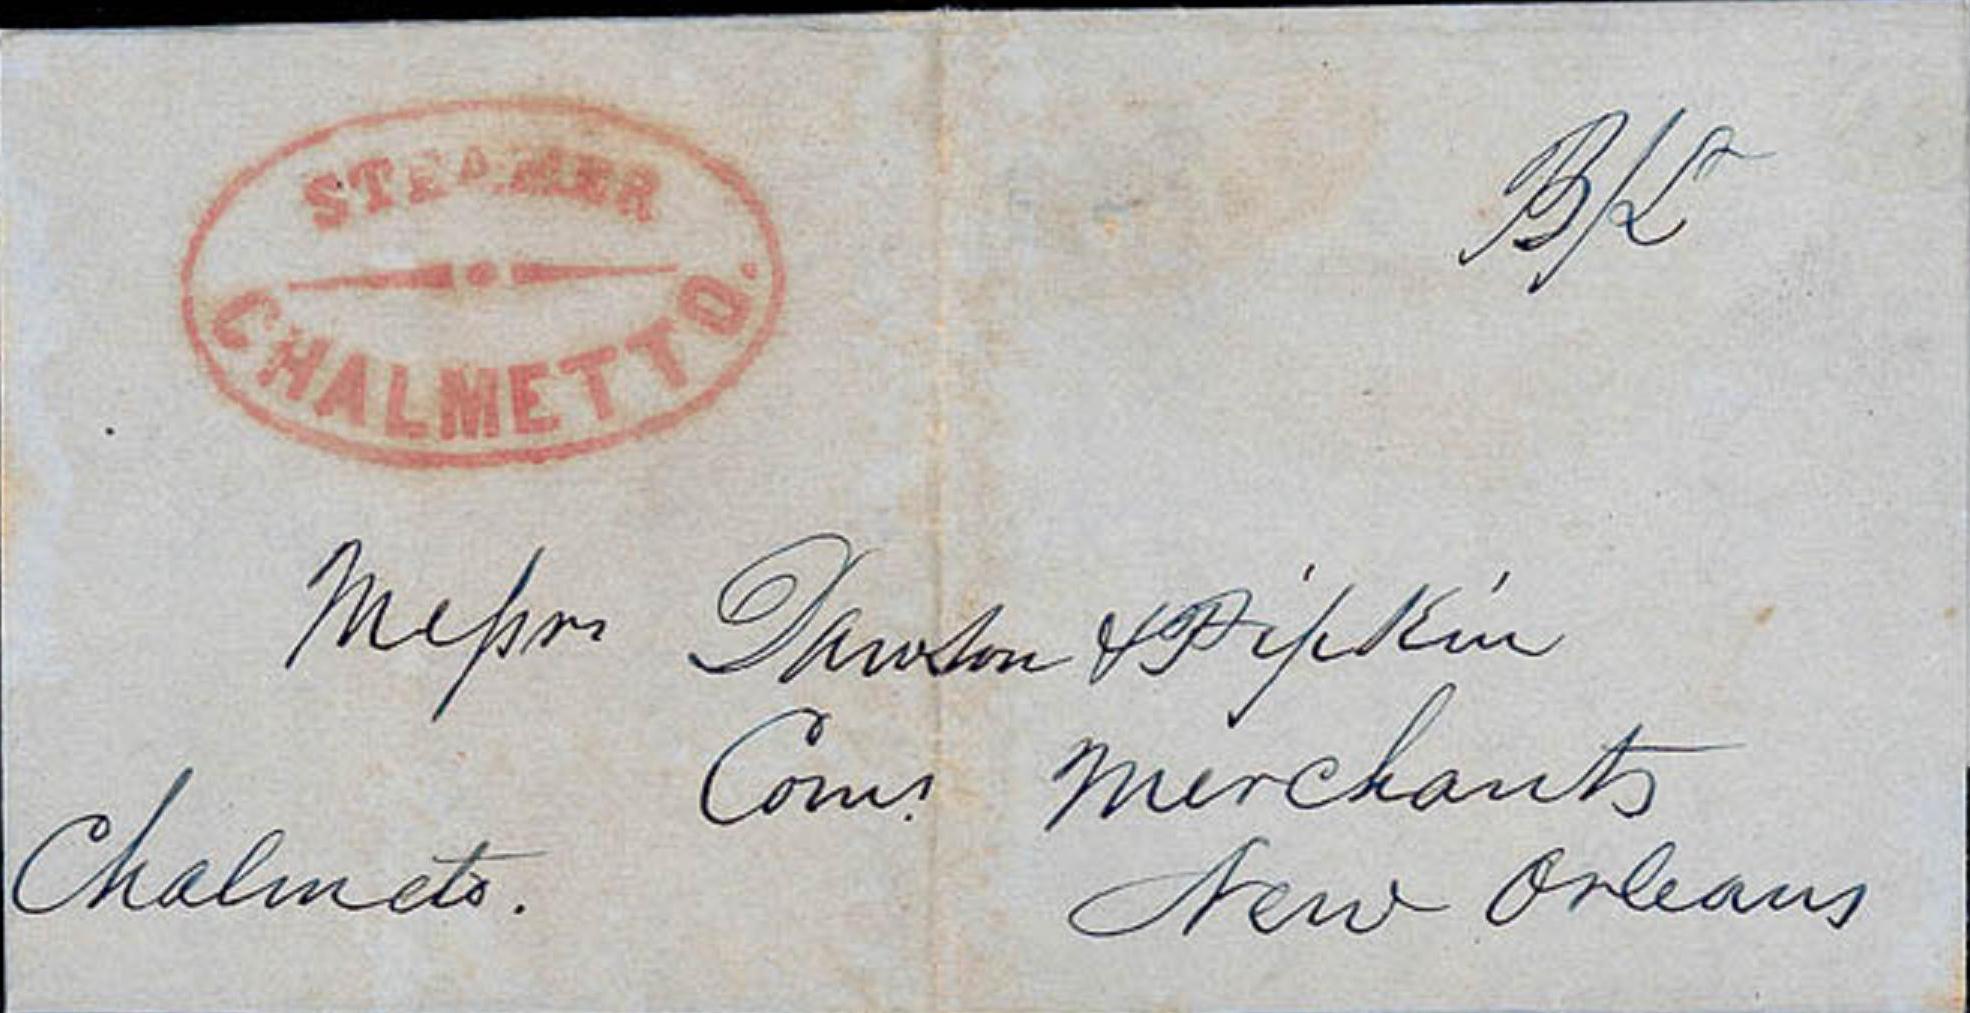 STEAMER
CHALMETTO.
B/L
Messrs Dawson & Pipkin
Com. Merchants
Chalmeto.
New Orleans